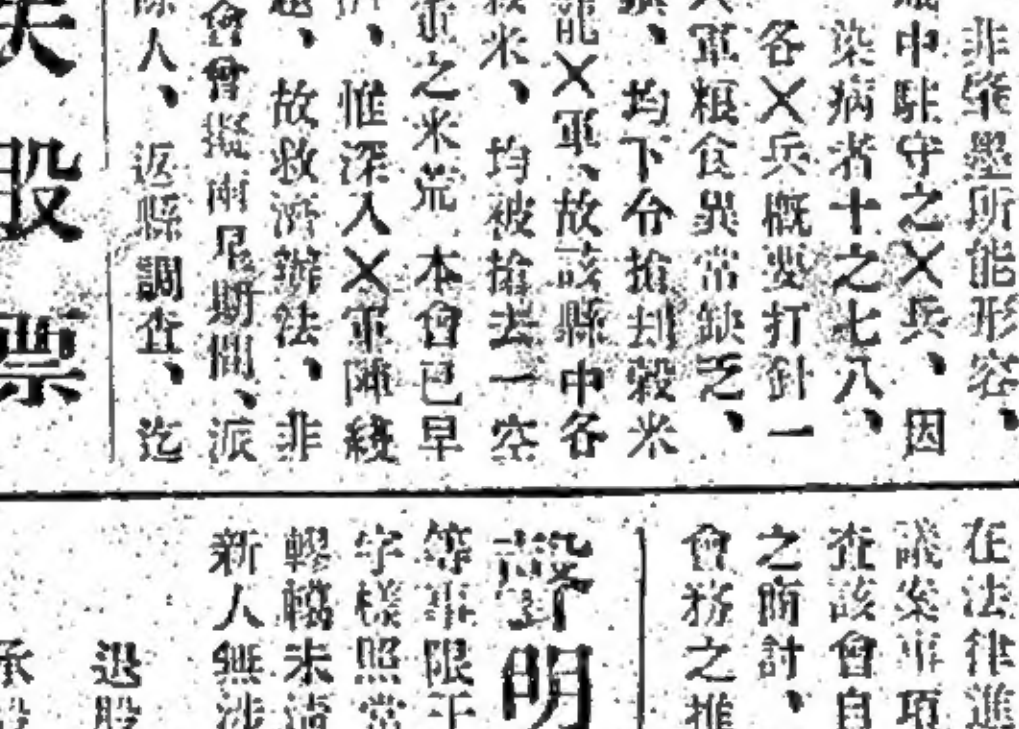 非筆墨所能形容、
中駐守之✕兵、因
染病者十之七八、
各✕兵概要打針一
軍粮食異常缺乏、
均下令搶刦穀米
龍✕軍、故該縣中各
米、均被搶去一空
之米荒、本會已早
、惟深入✕軍陣綫
、故救濟辦法、非
會曾擬兩星期間、派
人、返縣調查、迄
失股票
在法律進
議案事項
查該會自
之商討、
會務之推
聲明
等事限于
字樣照當
轇轕未清
新人無涉
退股
承